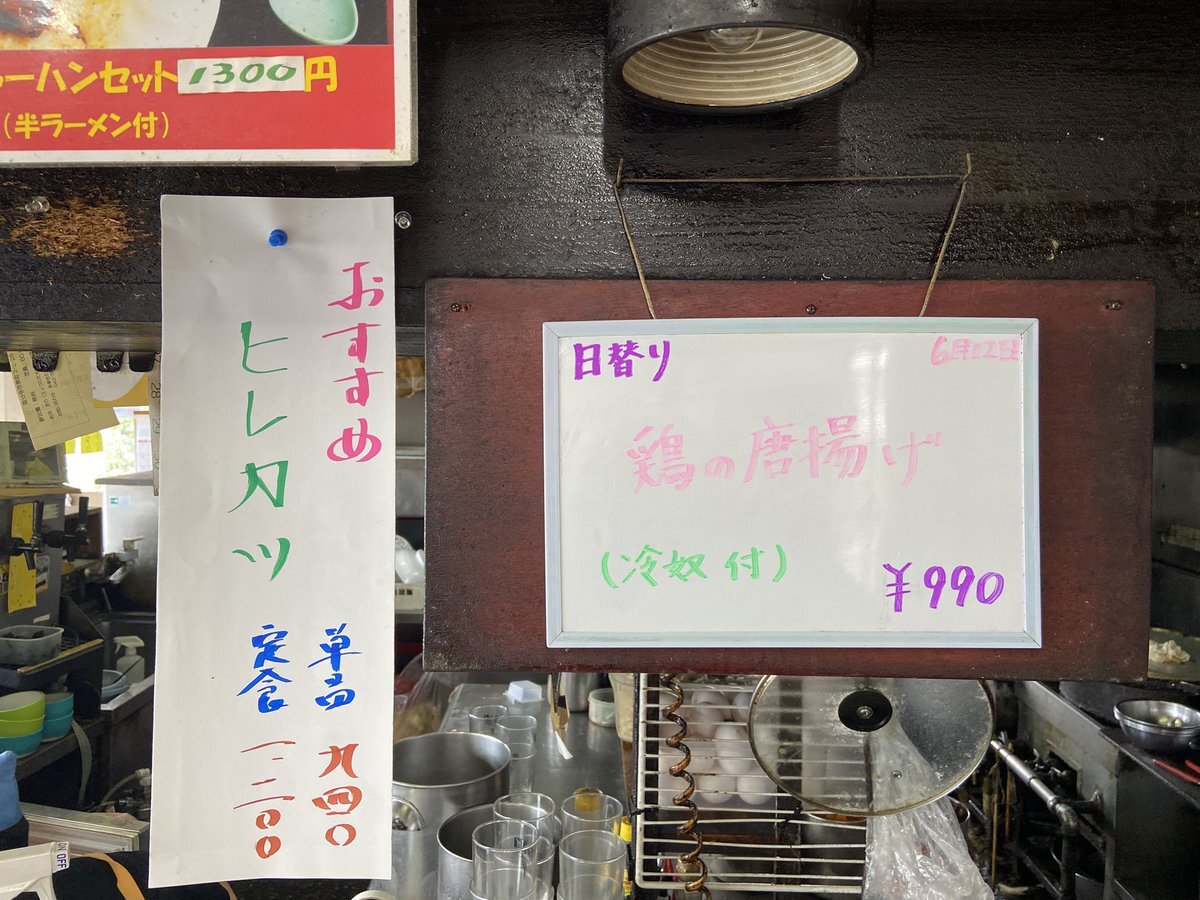 ーハンセット1300円
(半ラーメン付)
おすすめ
ヒレカツ
単品 九四〇
定食 一、二〇〇
日替り
6月02日
鶏の唐揚げ
(冷奴付)
¥990
28
ON OFF